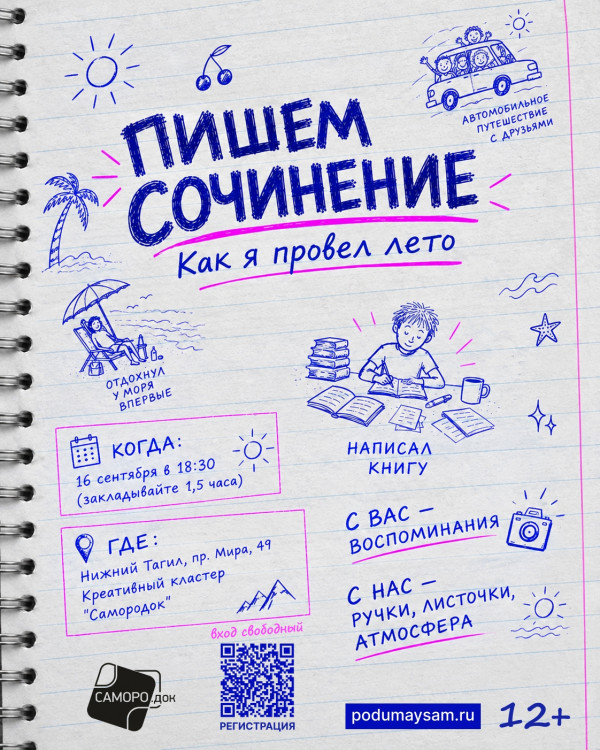 АВТОМОБИЛЬНОЕ
ПУТЕШЕСТВИЕ
С ДРУЗЬЯМИ
ПИШЕМ
СОЧИНЕНИЕ
Как я провел лето
ОТДОХНУЛ
У МОРЯ
ВПЕРВЫЕ
НАПИСАЛ
КНИГУ
КОГДА:
16 сентября в 18:30
(закладывайте 1,5 часа)
ГДЕ:
Нижний Тагил, пр. Мира, 49
Креативный кластер
"Самородок"
С ВАС –
ВОСПОМИНАНИЯ
С НАС –
РУЧКИ, ЛИСТОЧКИ,
АТМОСФЕРА
вход свободный
САМОРОДОК
РЕГИСТРАЦИЯ
podumaysam.ru
12+